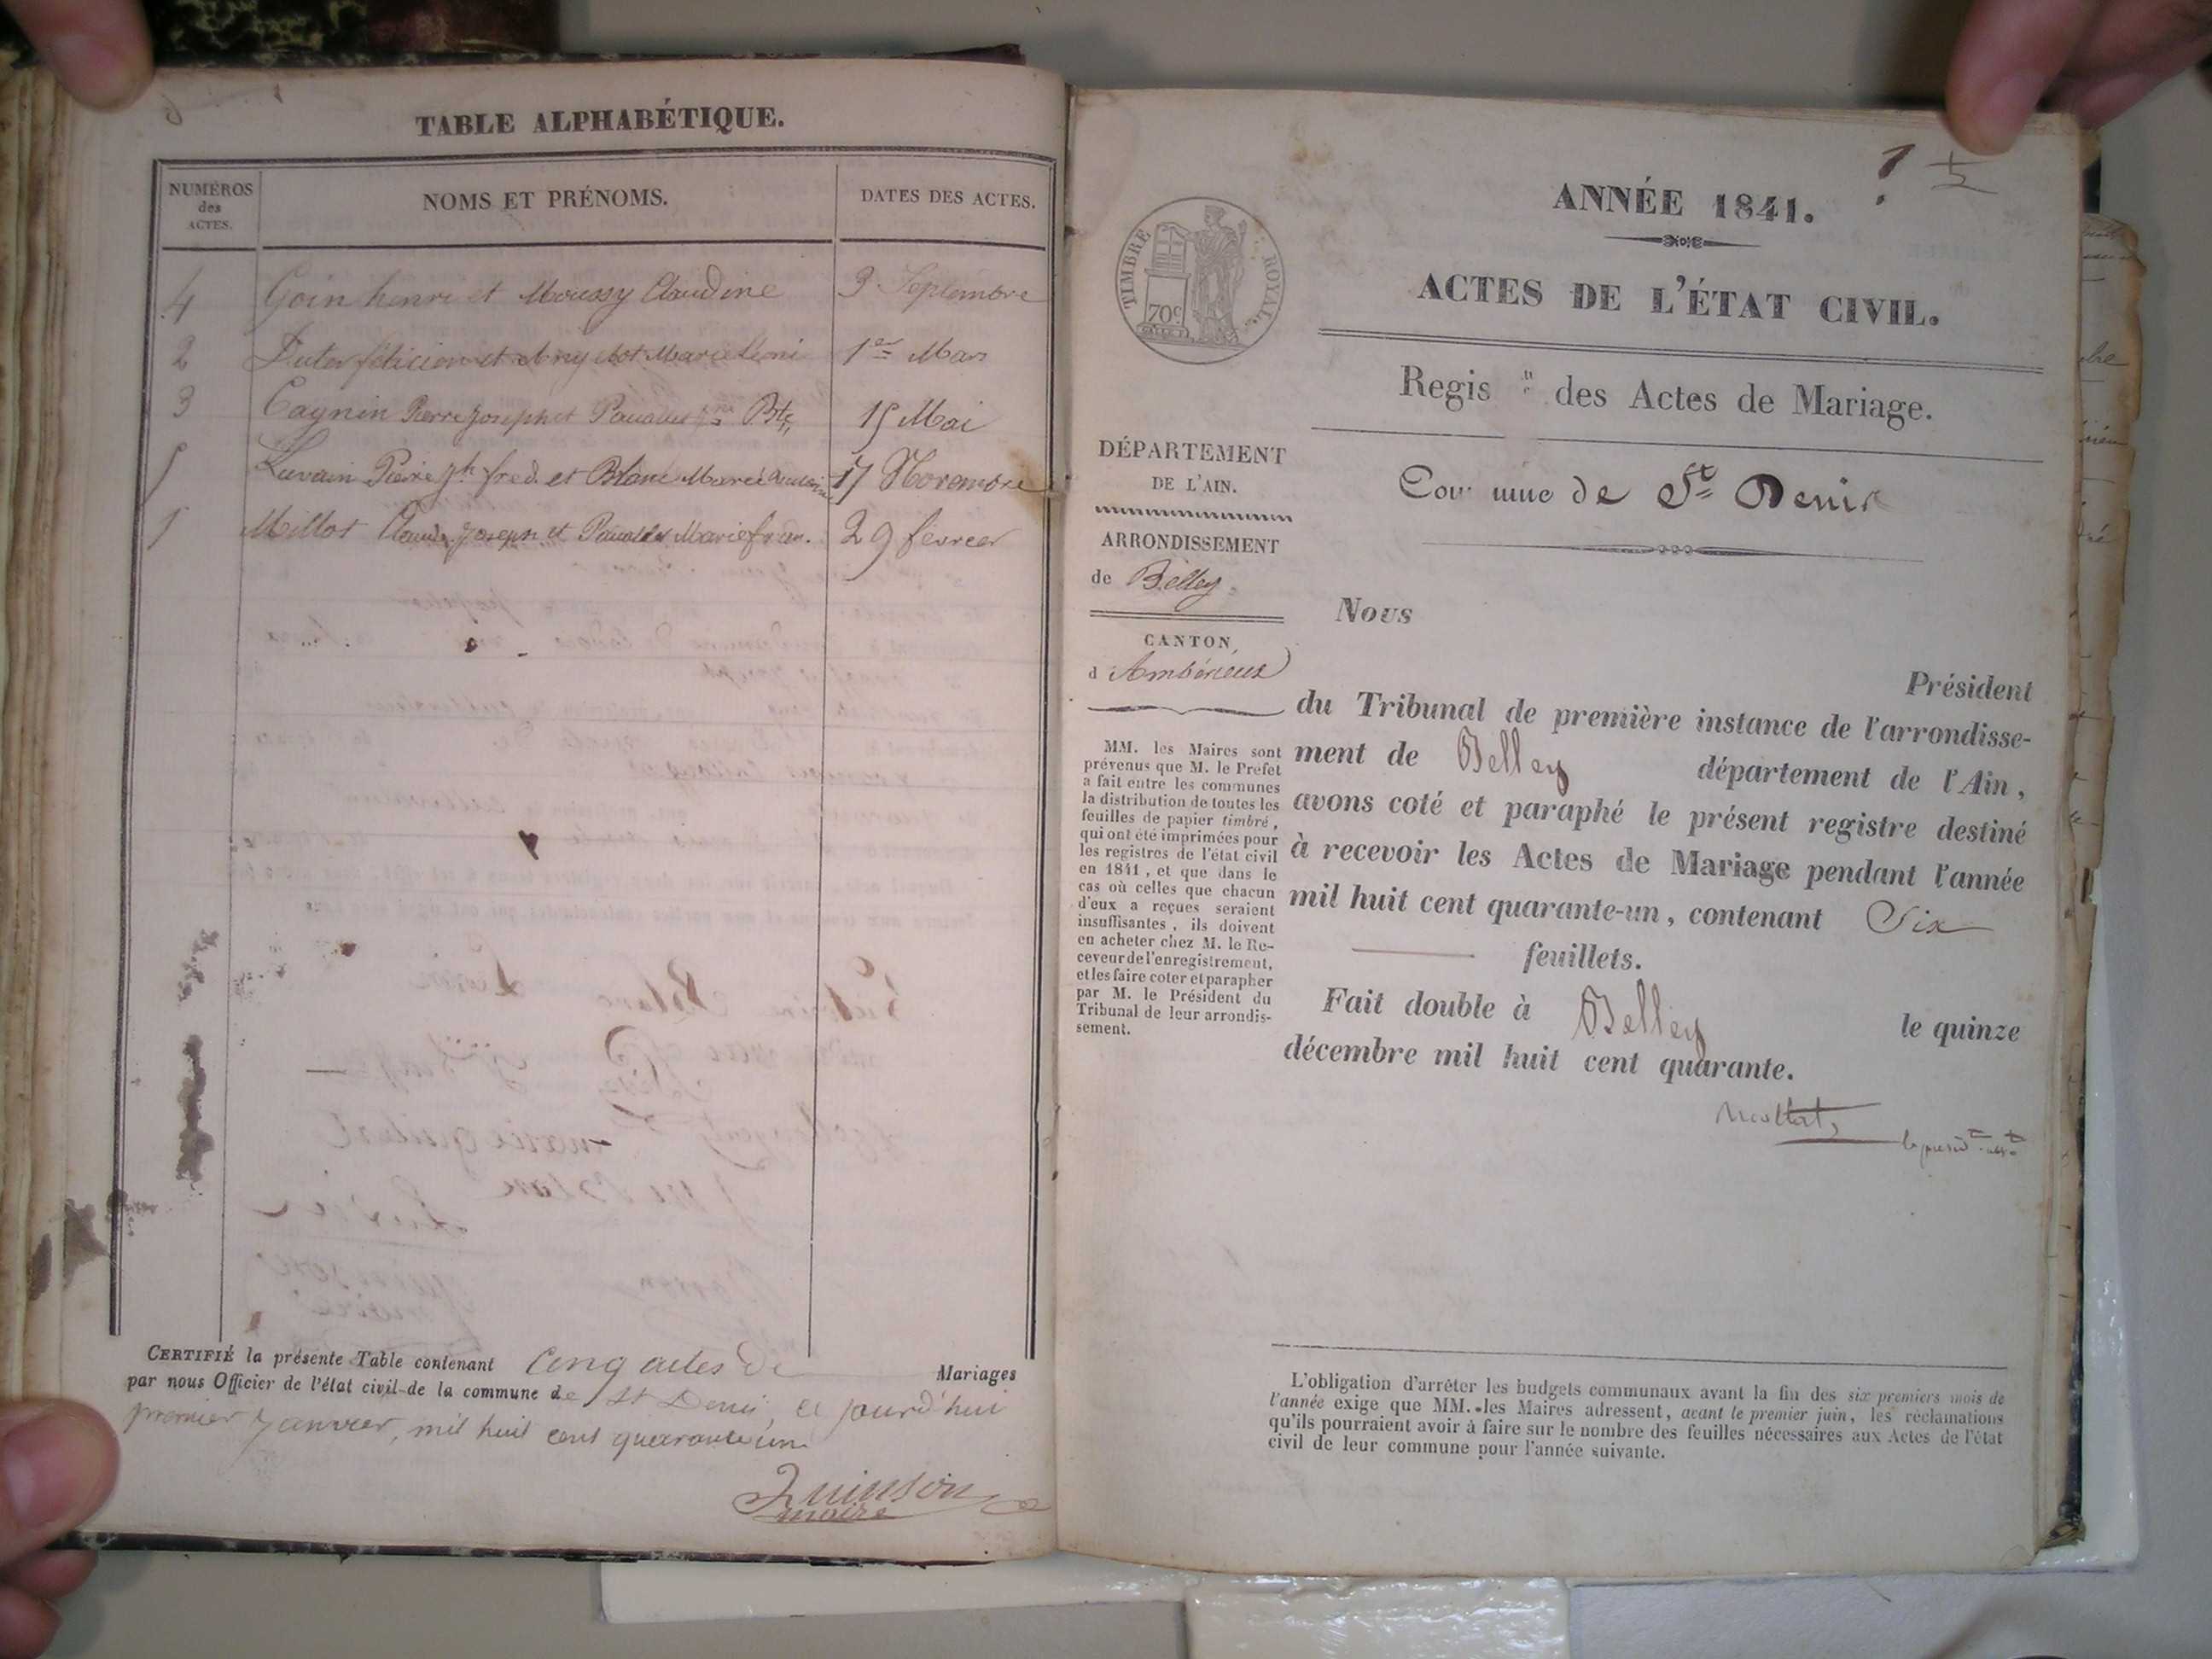 TABLE ALPHABÉTIQUE.
NUMÉROS
des
ACTES.
NOMS ET PRÉNOMS.
DATES DES ACTES.
4 Goin henri et Moussy Claudine 3 Septembre
2 et Marie 1er Mars
3 Cagnin Pierre Joseph et Bte 15 Mai
5 Pierre Jh fred. et Blanc Marie 17 Novembre
1 Millot Claude Joseph et Marie 29 fevrier
CERTIFIÉ la présente Table contenant Cinq actes de Mariages
par nous Officier de l'état civil de la commune de St Denis, ce jourd'hui
premier Janvier, mil huit cent quarante un
Quinson
maire
1
ANNÉE 1841.
TIMBRE ROYAL
70c
ACTES DE L'ÉTAT CIVIL.
Regis des Actes de Mariage.
Commune de St Denis
DÉPARTEMENT
DE L'AIN.
ARRONDISSEMENT
de Belley.
CANTON
d Ambérieux
MM. les Maires sont
prévenus que M. le Préfet
a fait entre les communes
la distribution de toutes les
feuilles de papier timbré,
qui ont été imprimées pour
les registres de l'état civil
en 1841, et que dans le
cas où celles que chacun
d'eux a reçues seraient
insuffisantes, ils doivent
en acheter chez M. le Re-
ceveur de l'enregistrement,
et les faire coter et parapher
par M. le Président du
Tribunal de leur arrondis-
sement.
Nous
Président
du Tribunal de première instance de l'arrondisse-
ment de Belley département de l'Ain,
avons coté et paraphé le présent registre destiné
à recevoir les Actes de Mariage pendant l'année
mil huit cent quarante-un, contenant Six
feuillets.
Fait double à Belley le quinze
décembre mil huit cent quarante.
L'obligation d'arrêter les budgets communaux avant la fin des six premiers mois de
l'année exige que MM. les Maires adressent, avant le premier juin, les réclamations
qu'ils pourraient avoir à faire sur le nombre des feuilles nécessaires aux Actes de l'état
civil de leur commune pour l'année suivante.